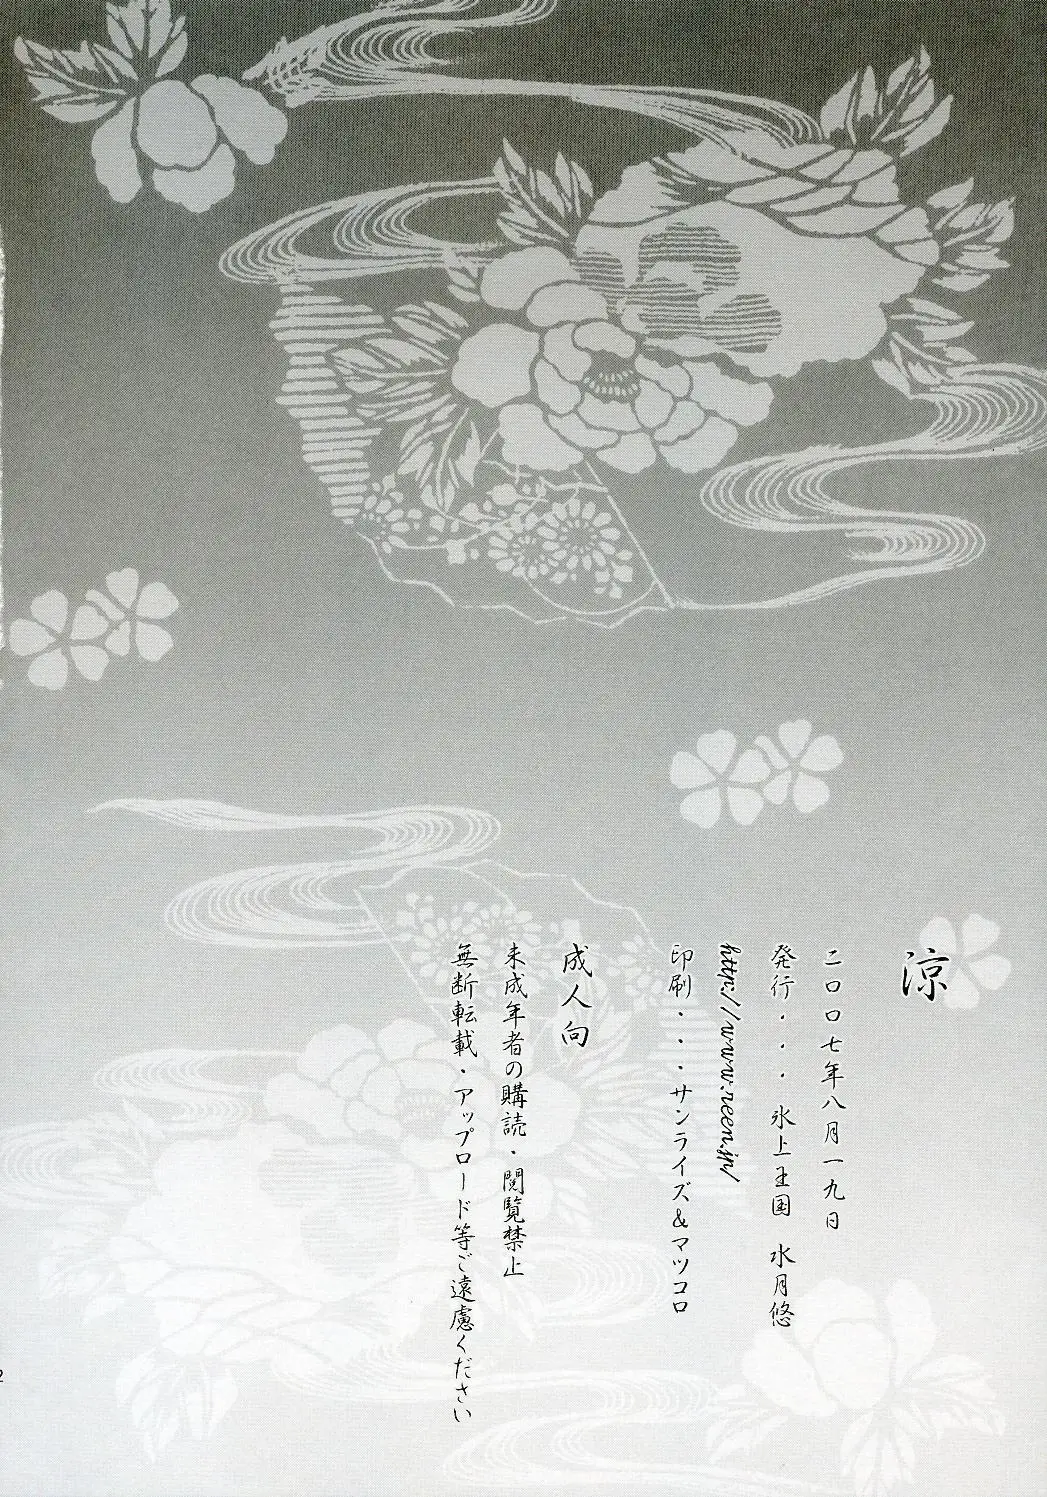 涼
二〇〇七年八月一九日
発行・・・氷上王国　水月悠
http://www.reen.jp/
印刷・・・サンライズ＆マツコロ
成人向
未成年者の購読・閲覧禁止
無断転載・アップロード等ご遠慮ください
2